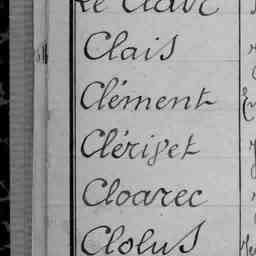 Le Clair
Clais
Clément
Clériget
Cloarec
Clolus